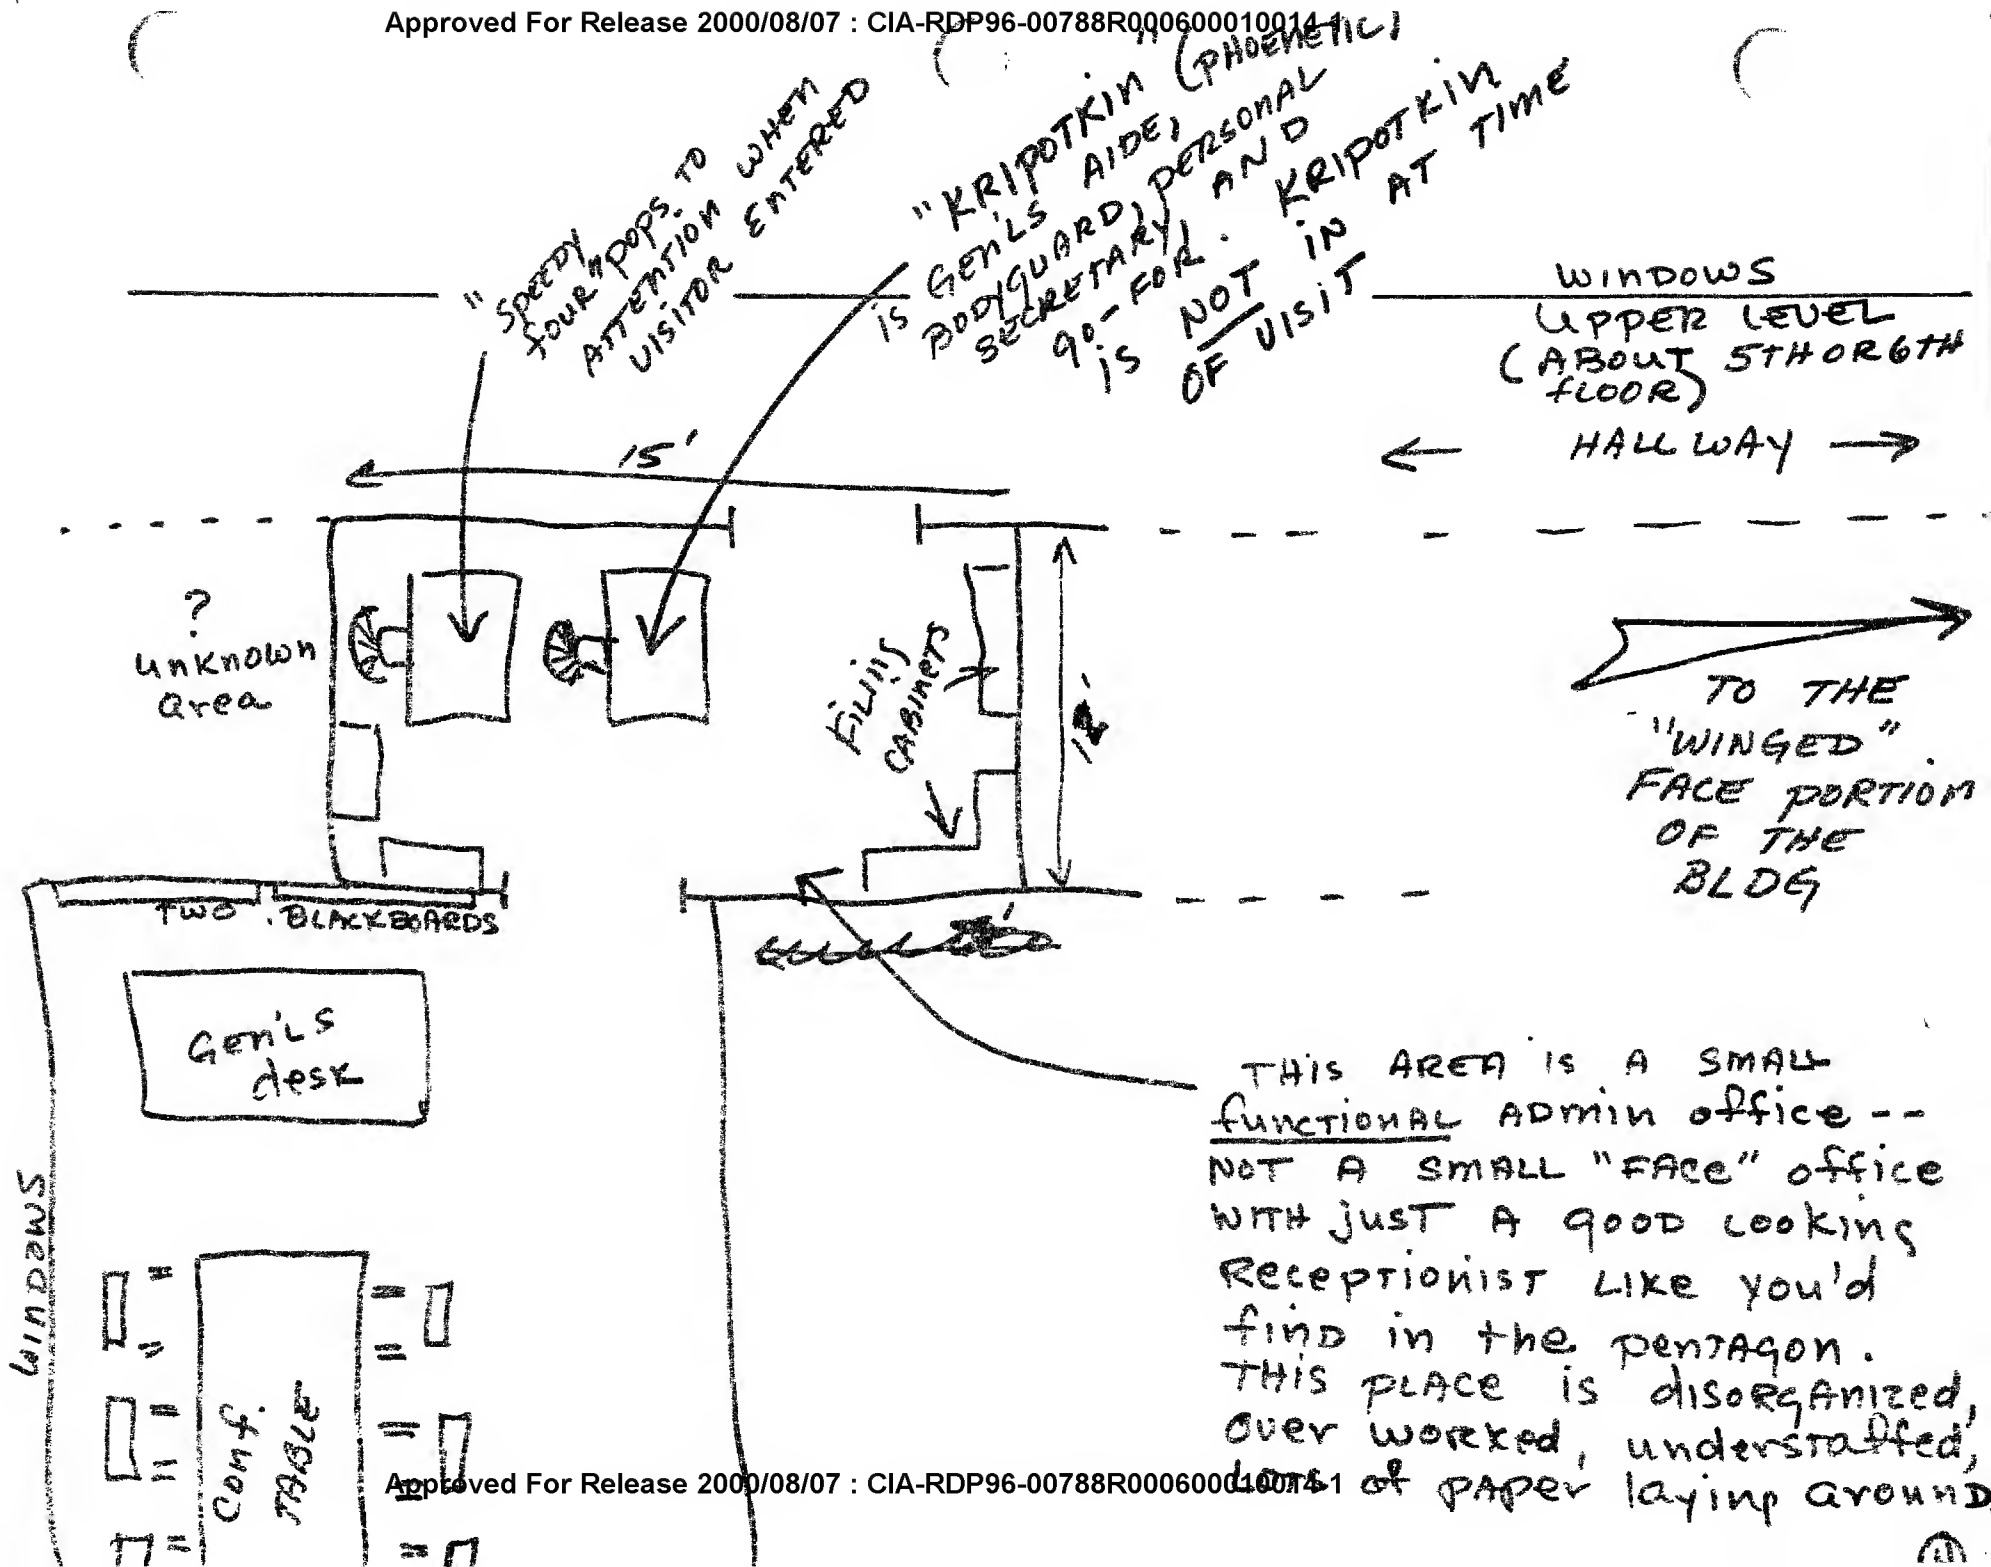 Approved For Release 2000/08/07 : CIA-RDP96-00788R000600010014-1
"SPEEDY
fOUR" POPS TO
ATTENTION WHEN
VISITOR ENTERED
"KRIPOTKIN" (PHOENETIC)
is GEN'LS AIDE,
BODYGUARD, PERSONAL
SECRETARY, AND
go-FOR. KRIPOTKIN
is NOT IN AT TIME
OF VISIT
WINDOWS
UPPER LEVEL
(ABOUT 5TH OR 6TH
fLOOR)
← HALLWAY →
15'
?
unknown
area
FiLiNg
CABINETS
TO THE
"WINGED"
FACE PORTION
OF THE
BLDG
TWO BLACKBOARDS
Gen'LS
desk
WINDOWS
Conf.
TABLE
THIS AREA IS A SMALL
functioNAL ADmin office --
NOT A SMALL "FACE" office
WITH just A GOOD LOOKING
RecepTioniST LIKE you'd
find in the penTAgon.
THIS pLAce is disorgAnized,
over worked, understaffed,
LOTS of PAPER laying AROUND
Approved For Release 2000/08/07 : CIA-RDP96-00788R000600010014-1